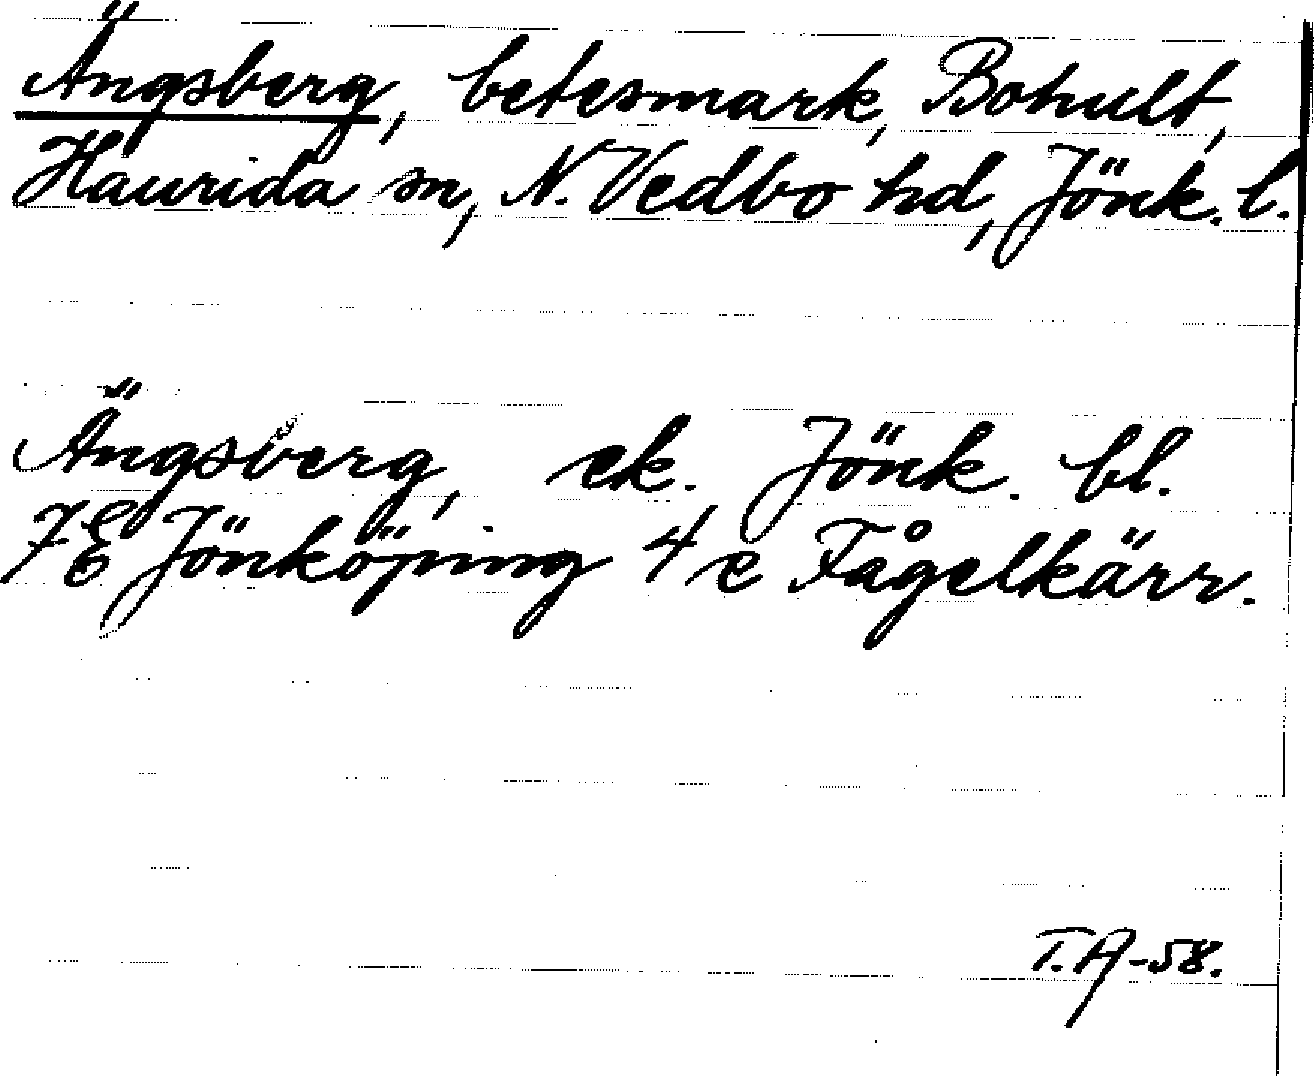 Ängsberg, betesmark, Bohult,
Haurida sn, N. Vedbo hd, Jönk. l.
Ängsberg, ek. Jönk. bl.
7E Jönköping 4 e Fågelkärr.
T.A-58.